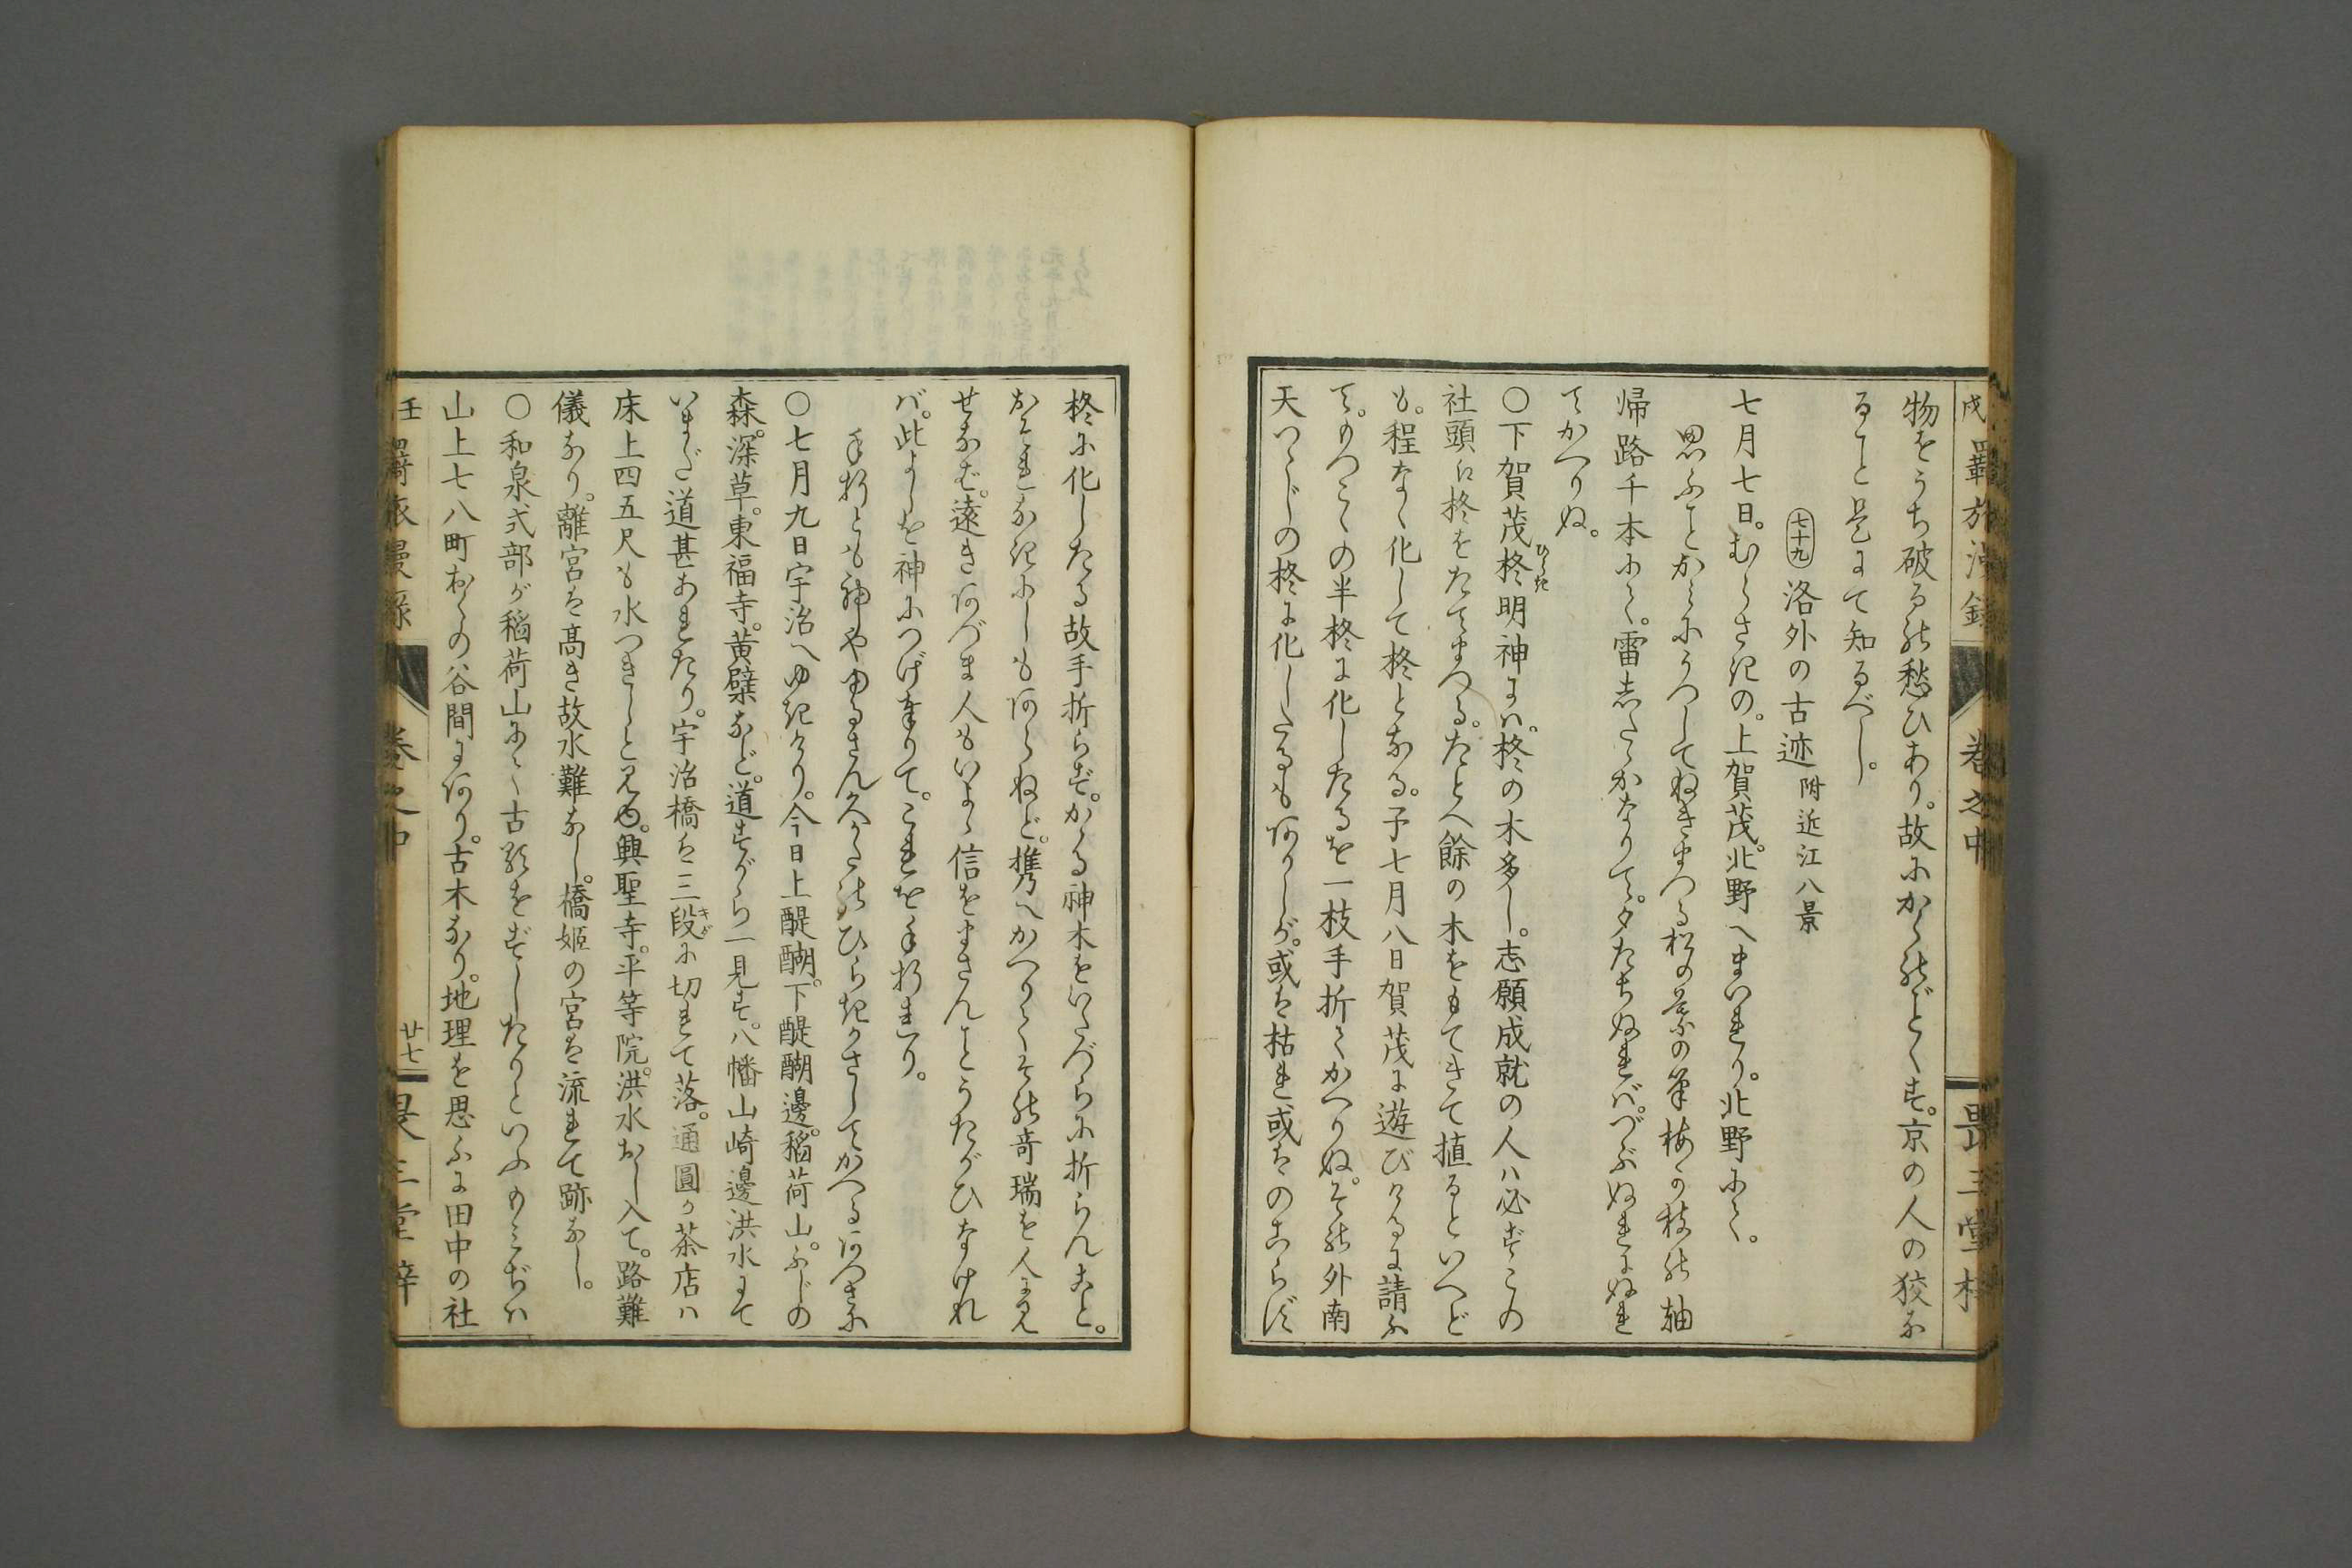 物をうち破るの愁ひあり。故にかくのごとくす。京の人の狡な
ること是にて知るべし。
七十九 洛外の古迹 附近江八景
七月七日。むらさきの。上賀茂。北野へまいれり。北野にて。
思ふことかみにうつしてねぎまつる松の葉の筆梅が枝の軸
帰路千本にて。雷したゝかなりて。夕たちぬれバ。づぶぬれにぬれ
てかへりぬ。
○下賀茂柊明神にハ。柊の木多し。志願成就の人ハ必ずこの
ひらき
社頭に柊をたてまつる。たとへ餘の木をもてきて植るといへど
も。程なく化して柊となる。予七月八日賀茂に遊びけるに請ふ
て。もつこくの半柊に化したるを一枝手折てかへりぬ。その外南
天つゝじの柊に化したるもありしが。或は枯れ或はのこらず
柊に化したる故手折らず。かゝる神木をいたづらに折らんこと。
おそれなきにしもあらねど。携へかへりてその奇瑞を人に見
せなば。遠きあづま人もいよゝ信をまさんことうたがひなけれ
バ。此よしを神につげ奉りて。これを手折れり。
手折とも神やゆるさん久かたのひらきかざしてかへるあづまに
○七月九日宇治へゆきけり。今日上醍醐。下醍醐邊。稲荷山。ふじの
森。深草。東福寺。黄檗など。道すがら一見す。八幡山崎邊洪水にて
いまだ道甚あれたり。宇治橋は三段に切れて落。通圓が茶店ハ
キダ
床上四五尺も水つきしと見ゆ。興聖寺。平等院。洪水おし入て。路難
儀なり。離宮は高き故水難なし。橋姫の宮は流れて跡なし。
○和泉式部が稲荷山にて古歌をずしたりといふもみぢハ
山上七八町おくの谷間にあり。古木なり。地理を思ふに田中の社
羇旅漫録 巻之中 畏三堂
巻之中 廿七 三堂梓